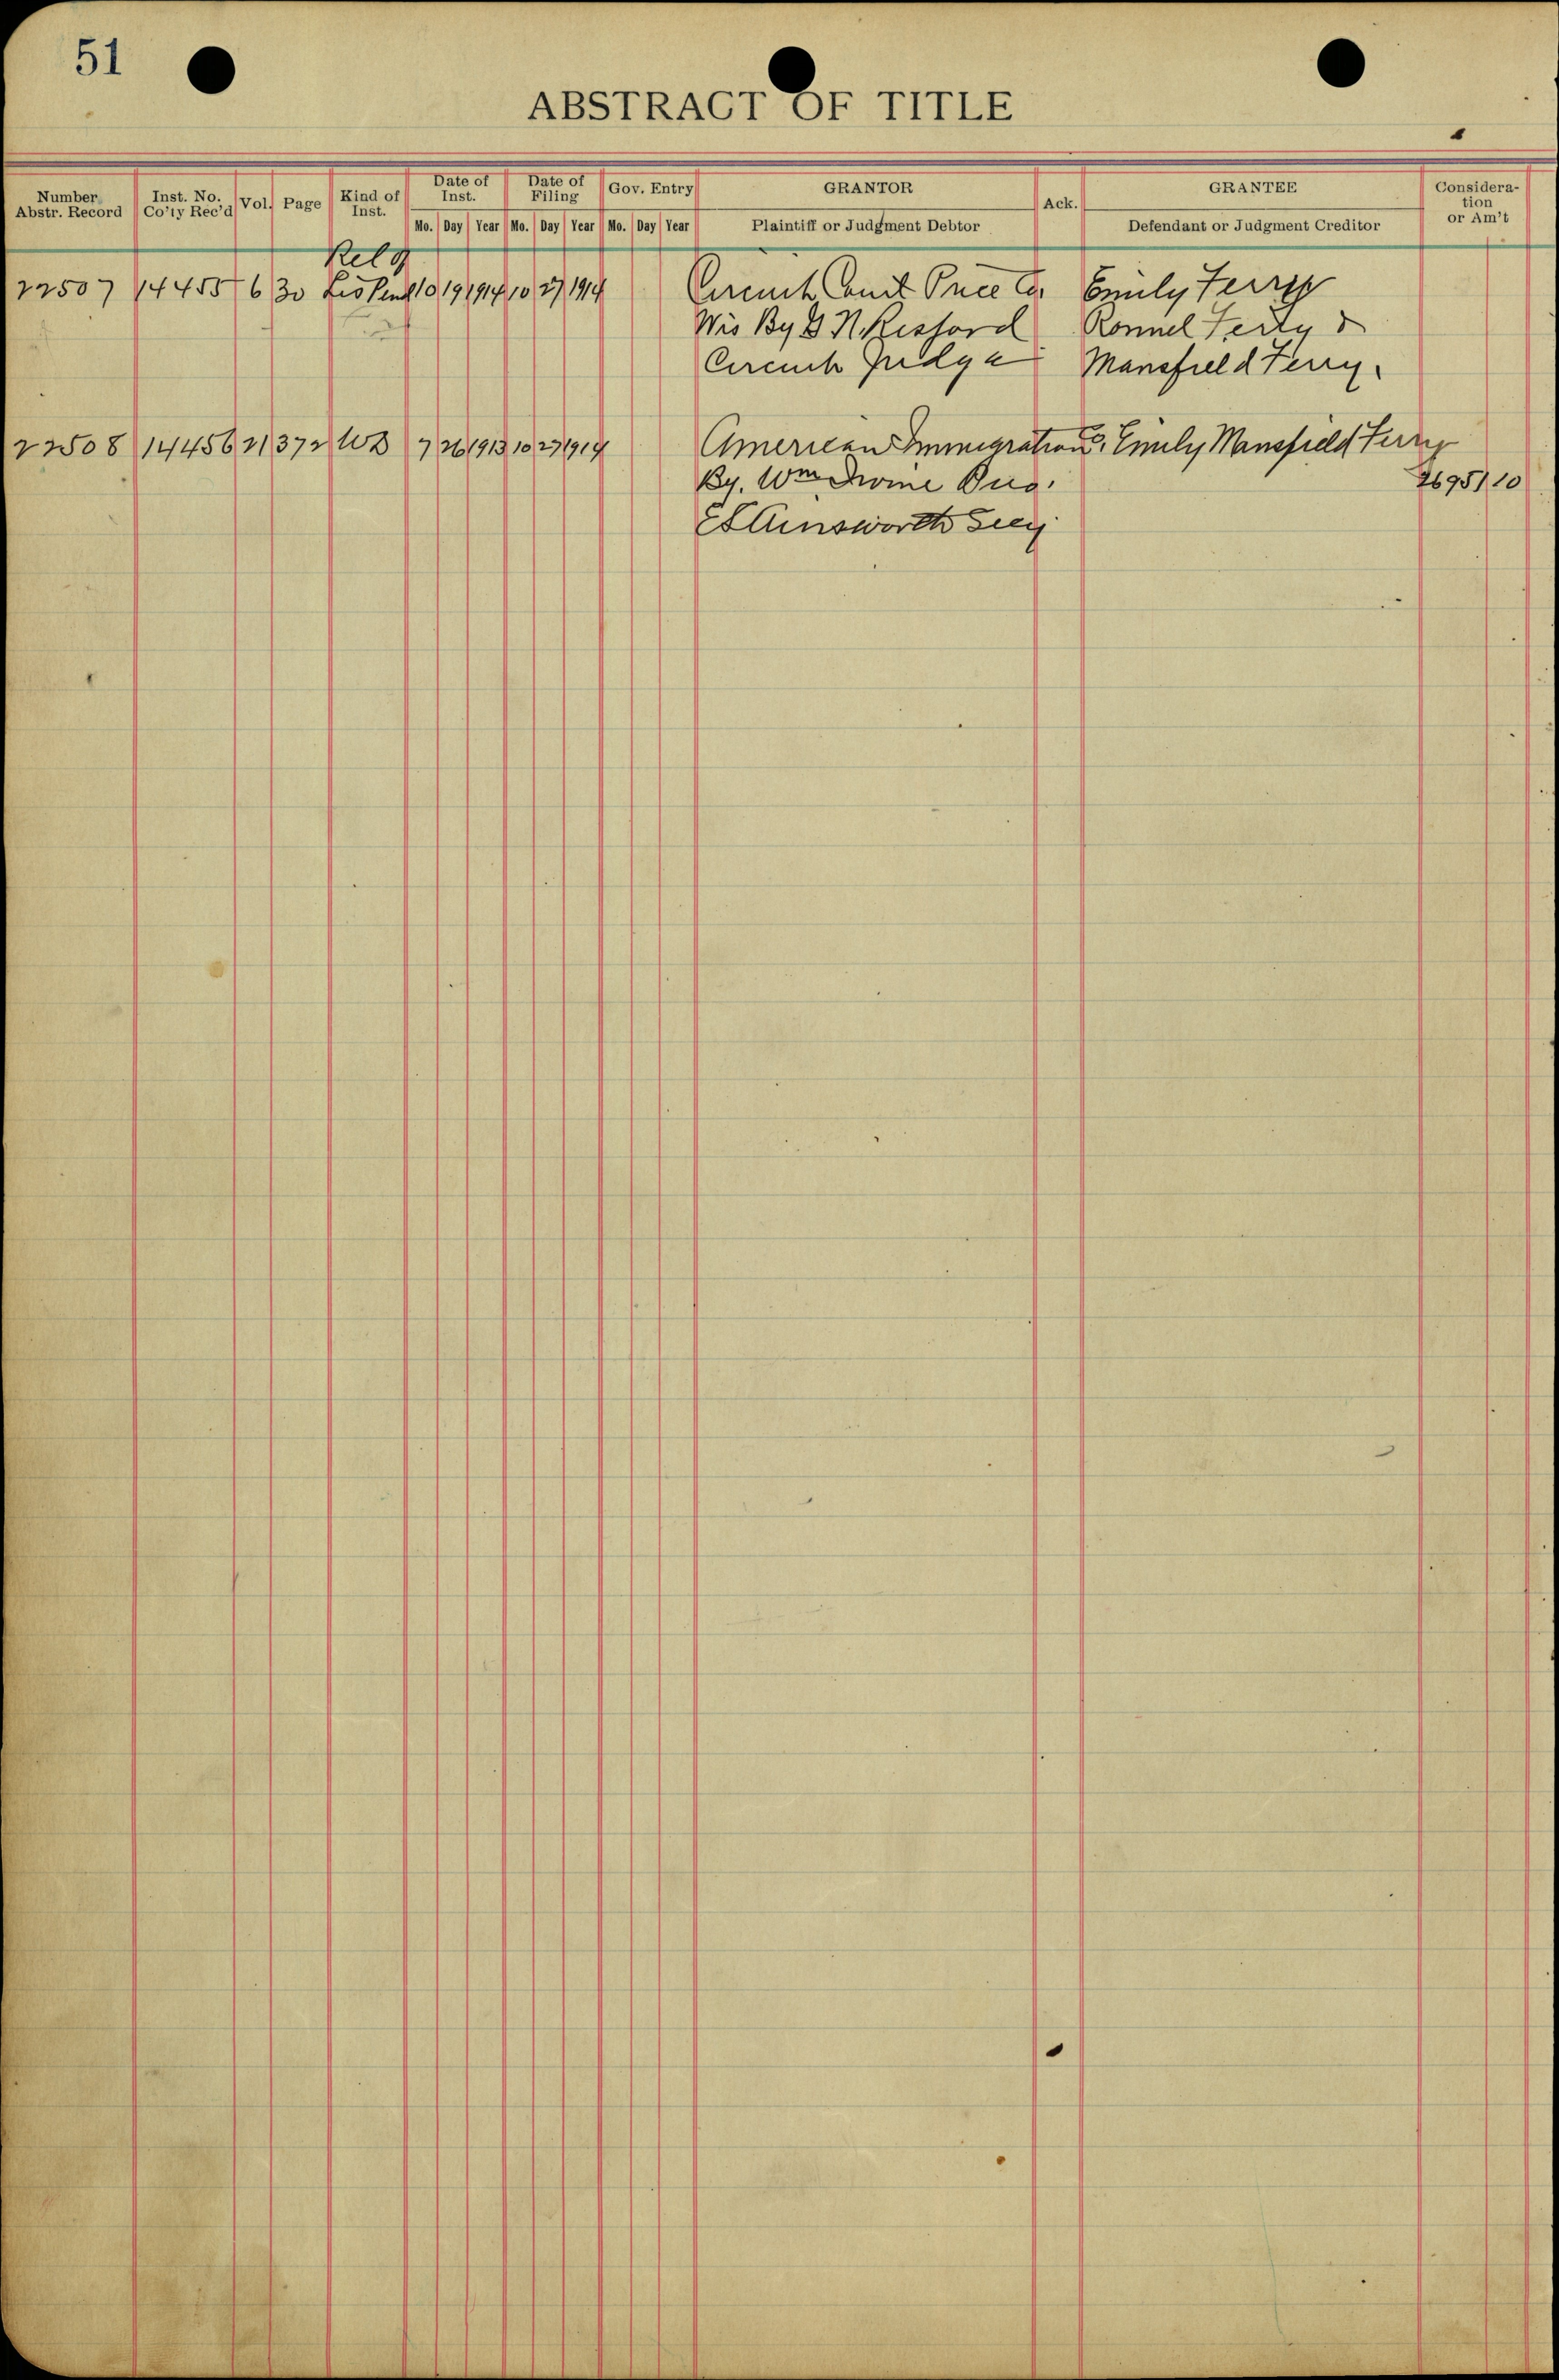 51
ABSTRACT OF TITLE
Number Abstr. Record Inst. No. Co'ty Rec'd Vol. Page Kind of Inst. Date of Inst. Date of Filing Gov. Entry GRANTOR Ack. GRANTEE Consideration or Am't
Mo. Day Year Mo. Day Year Mo. Day Year Plaintiff or Judgment Debtor Defendant or Judgment Creditor
Rel of
22507 14455 6 30 Lis Pend 10 19 1914 10 27 1914 Circuit Court Price Co. Emily Terry
Wis By G N Risjord Ronnel Terry &
Circuit Judge Mansfield Terry.
22508 14456 21 372 WD 7 26 1913 10 27 1914 American Immigration Co. Emily Mansfield Terry
By. Wm Irvine Pres. 2695 10
Ainsworth Secy